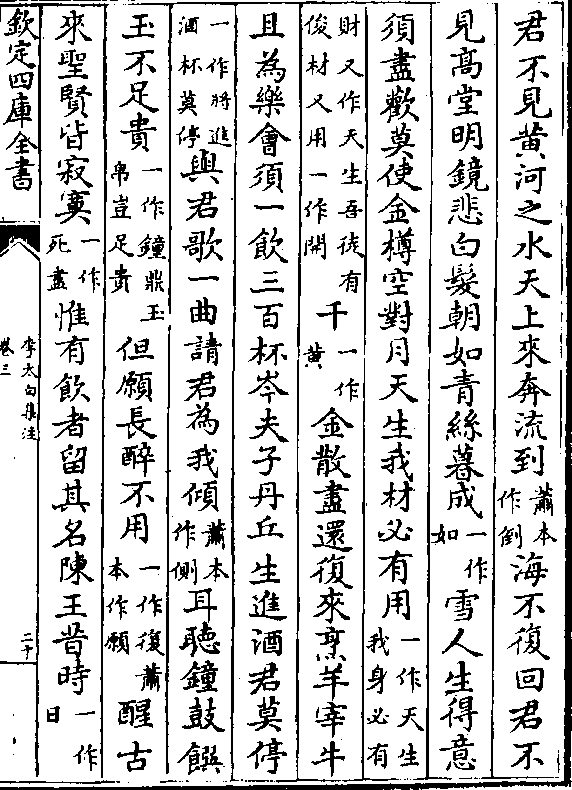 君不見黄河之水天上來奔流到蕭本作倒海不復回君不
見髙堂明鏡悲白髮朝如青絲暮成一作如雪人生得意
須盡歡莫使金樽空對月天生我材必有用一作天生我身必有
財又作天生吾徒有俊材又用一作開千一作黄金散盡還復來烹羊宰牛
且為樂會須一飲三百杯岑夫子丹丘生進酒君莫停
一作將進酒杯莫停與君歌一曲請君為我傾蕭本作側耳聽鐘鼓饌
玉不足貴一作鐘鼎玉帛豈足貴但願長醉不用一作復蕭本作願醒古
來聖賢皆寂寞一作死盡惟有飲者留其名陳王昔時一作日
欽定四庫全書
李太白集注
卷三
二十